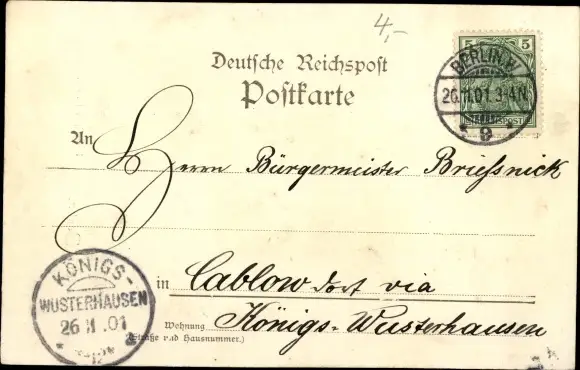 4,-
Deutsche Reichspost
Postkarte
5 5
REICHSPOST
BERLIN.W.
26.11.01.3-4N.
* 9 *
An Herrn Bürgermeister Briefsnick
in Cablow dort via
Wohnung Königs-Wusterhausen
(Straße und Hausnummer.)
KÖNIGS-
WUSTERHAUSEN
26 11 01